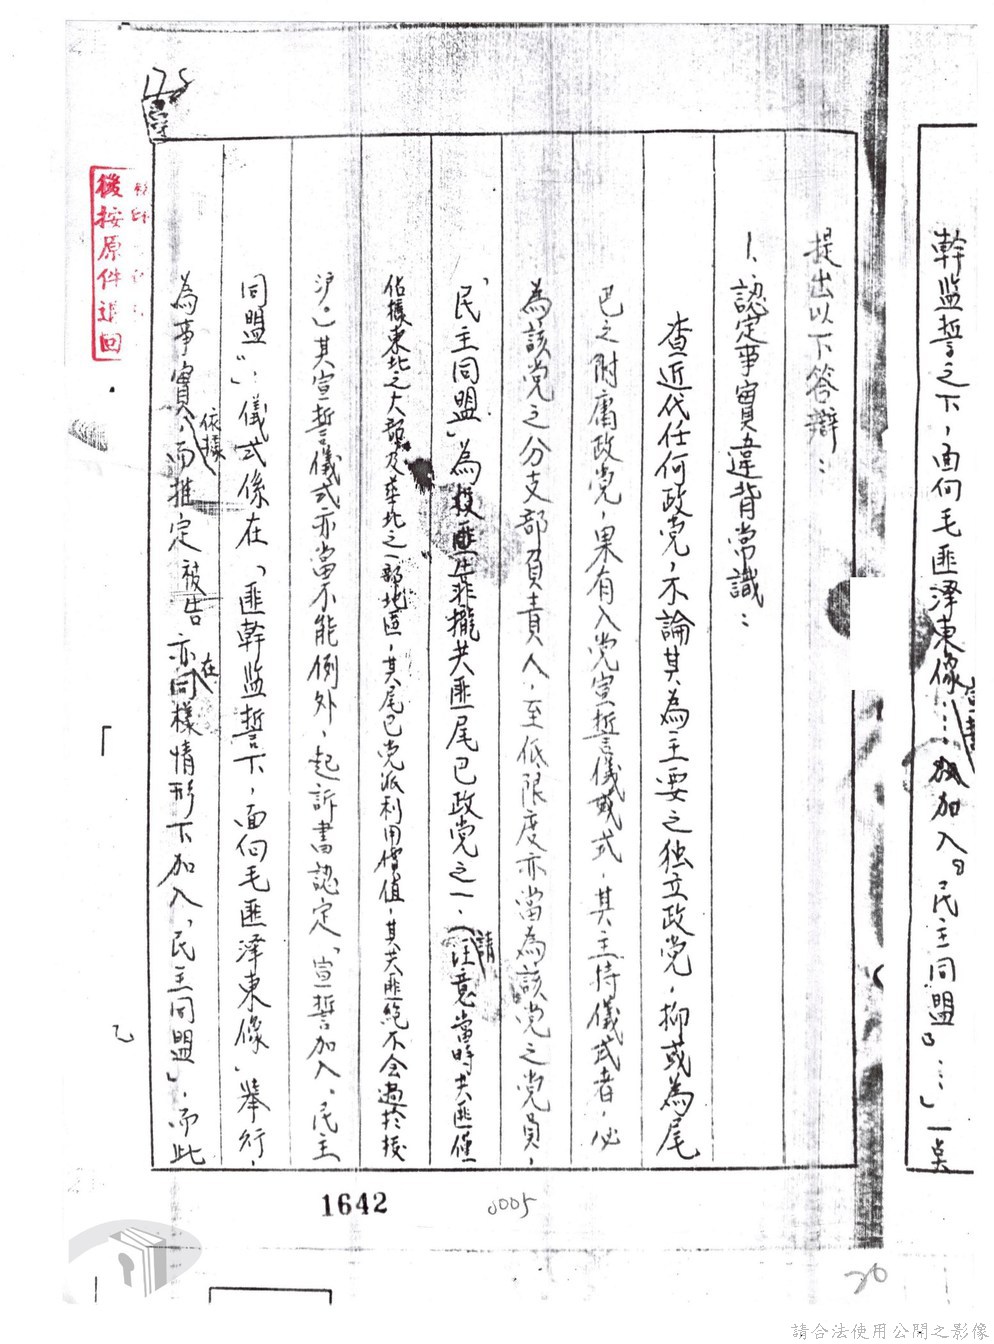 幹监誓之下，面向毛匪澤東像……加入『民主同盟』……」一芖
提出以下答辯：
1、認定事實違背常識：
查近代任何政党，不論其為主要之独立政党，抑或為尾
巴之附庸政党，果有入党宣誓儀式，其主持儀式者，必
為該党之分支部負責人，至低限度亦當為該党之党員，
「民主同盟」為投匪左非攏共匪尾巴政党之一，（請注意當時共匪僅
佔據東北之大部及華北之一部地區，其尾巴党派利用價值，其共匪絕不会過於按
沪。）其宣誓儀式亦當不能例外，起訴書認定「宣誓加入『民主
同盟』」儀式係在「匪幹监誓下，面向毛匪澤東像」舉行，
為事實，依據而推定被告亦在同樣情形下加入「民主同盟」，而此
後按原件退回
1642
0005
20
175
請合法使用公開之影像